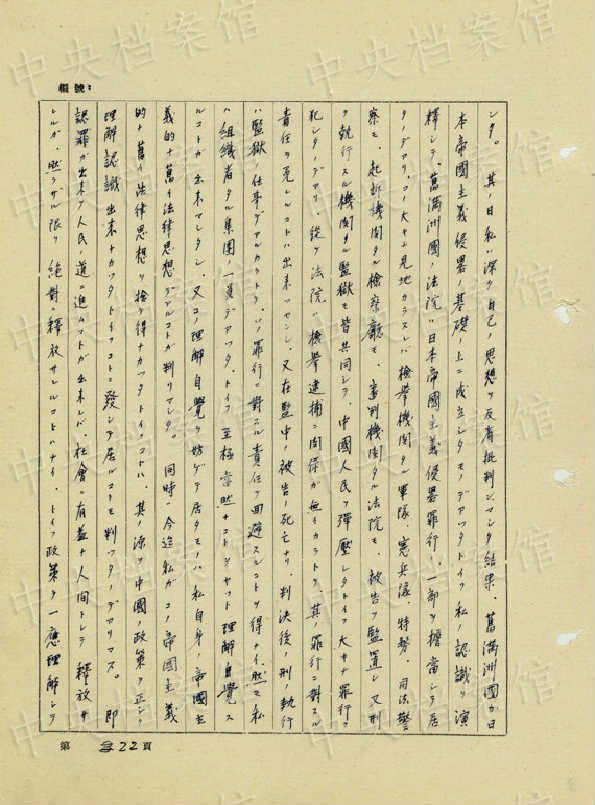 編號:
シタ。其ノ日私ハ深ク自己ノ思想ヲ反省批判シマシタ結果、舊満洲國ガ日
本帝國主義侵略ノ基礎ノ上ニ成立シタモノデアツタトイフ私ノ認識ヲ演
釋シテ、舊満洲國ノ法院ハ日本帝國主義侵略罪行ノ一部ヲ擔当シテ居
ターデアリ、コノ大キナ見地カラスレバ検挙機関タル軍隊、憲兵隊、特務、司法警
察モ、起訴機関タル検察廳モ、審判機関タル法院モ、被告ヲ監置シ又刑
ヲ執行スル機関タル監獄モ皆共同シテ、中國人民ヲ彈壓シタトイフ大キナ罪行ヲ
犯シターデアリ、從ツテ法院ハ検挙逮捕ニ関係ガ無イカラトテ、其ノ罪行ニ対スル
責任ヲ免レルコトハ出来マセンシ、又在監中ノ被告ノ死亡ナリ、判決後ノ刑ノ執行
ハ監獄ノ仕事デアルカラトテ、ソノ罪行ニ対スル責任ヲ回避スルコトヲ得ナイ、然モ私
ハ組織者タル集團ノ一員デアツタ、トイフ至極当然ナコトジヤツト理解自覚ス
ルコトガ出来マシタシ、又コノ理解自覚ヲ妨ゲテ居タモノハ私自身ノ帝國主
義的ナ舊イ法律思想デアルコトガ判リマシタ。同時ニ今迄私ガコノ帝國主義
的ナ舊イ法律思想ヲ捨テ得ナカツタトイフコトハ、其ノ源ヲ中國ノ政策ヲ正シク
理解認識出来ナカツタトイフコトニ発シテ居ルコトモ判ツターデアリマス。即
認罪ガ出来テ人民ノ道ニ進ムコトガ出来レバ、社會ニ有益ナ人間トシテ釋放サ
レルガ、然ラザル限リ絶対ニ釋放サレルコトハナイ、トイフ政策ヲ一應理解シテ
第 322 頁
中央档案馆